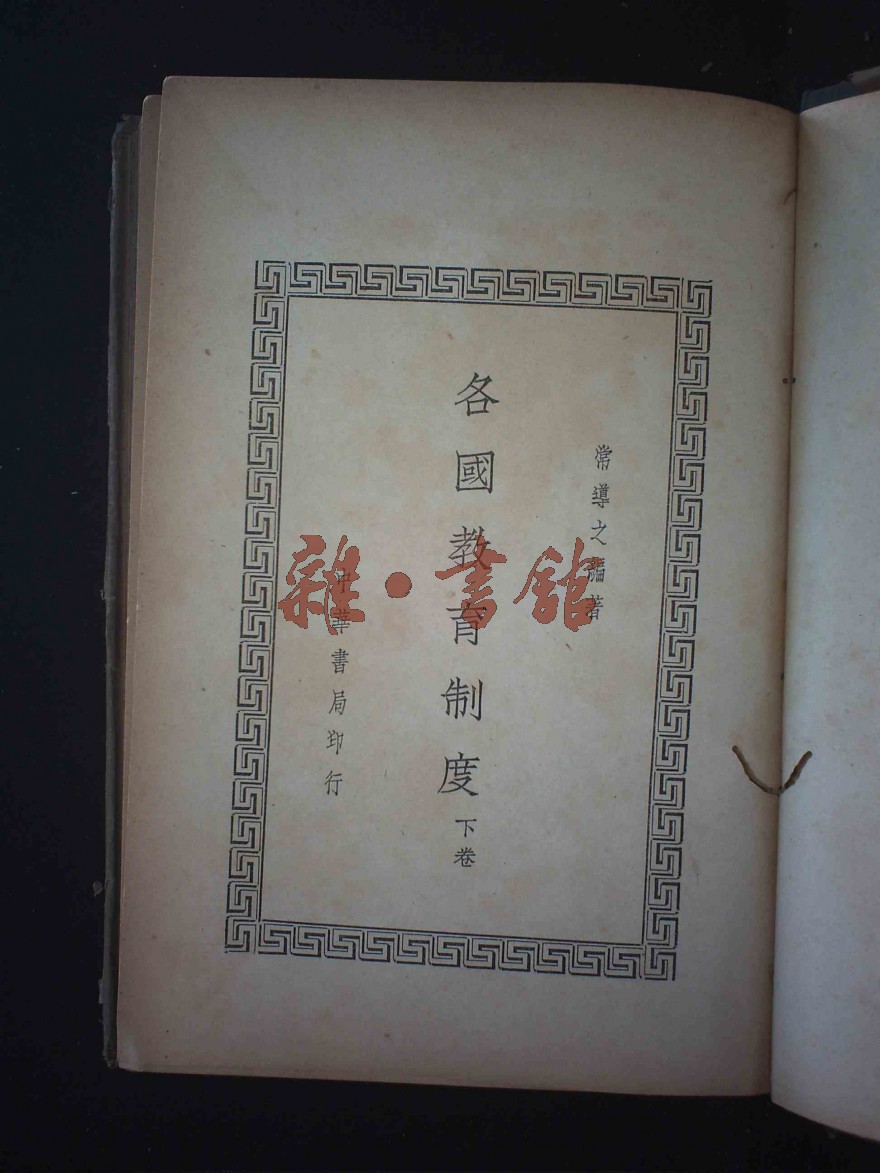 常導之編著
各國教育制度 下卷
中華書局印行
雜·書館